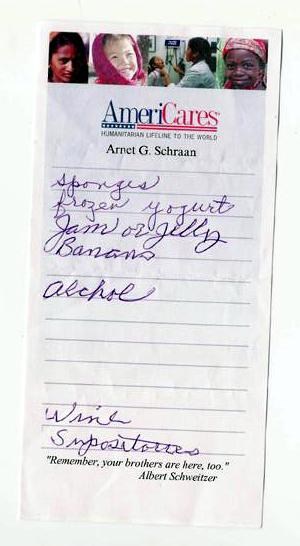 AmeriCares
HUMANITARIAN LIFELINE TO THE WORLD
Arnet G. Schraan
Sponges
frozen yogurt
Jam or Jelly
Banans
Alchol
Wine
Supositories
"Remember, your brothers are here, too."
Albert Schweitzer